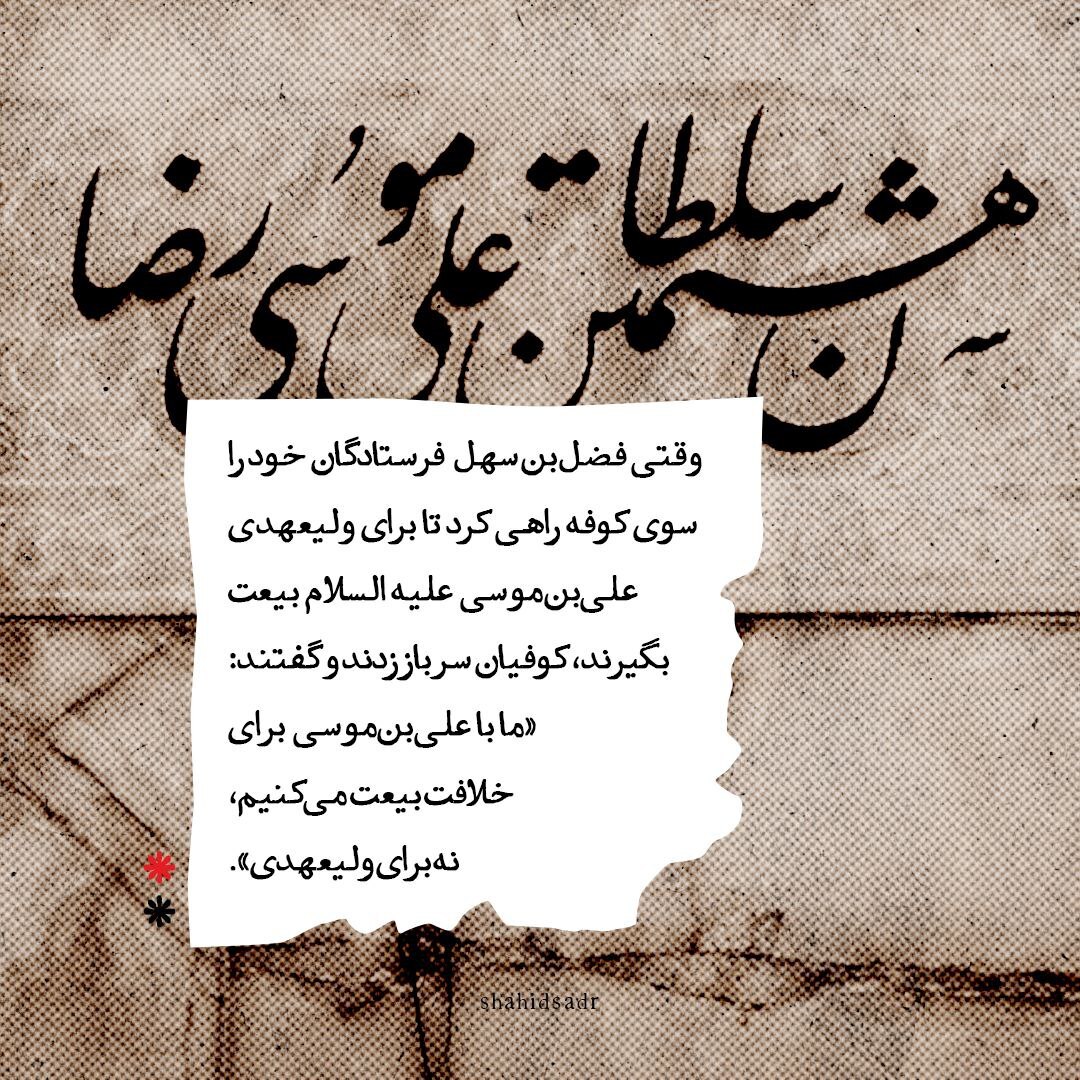 هشتمین سلطان علی موسی رضا
وقتی فضل‌بن‌سهل فرستادگان خود را
سوی کوفه راهی کرد تا برای ولیعهدی
علی‌بن‌موسی علیه السلام بیعت
بگیرند، کوفیان سر باز زدند و گفتند:
«ما با علی‌بن‌موسی برای
خلافت بیعت می‌کنیم،
نه برای ولیعهدی».
shahidsadr